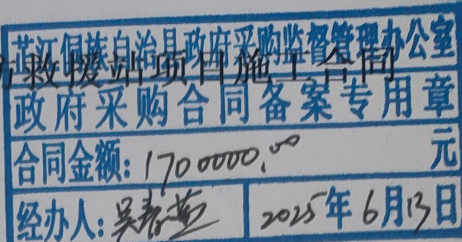 芷江侗族自治县政府采购监督管理办公室
救援站项目施工合同
政府采购合同备案专用章
合同金额：1700000.00 元
经办人：吴春
2025年6月13日